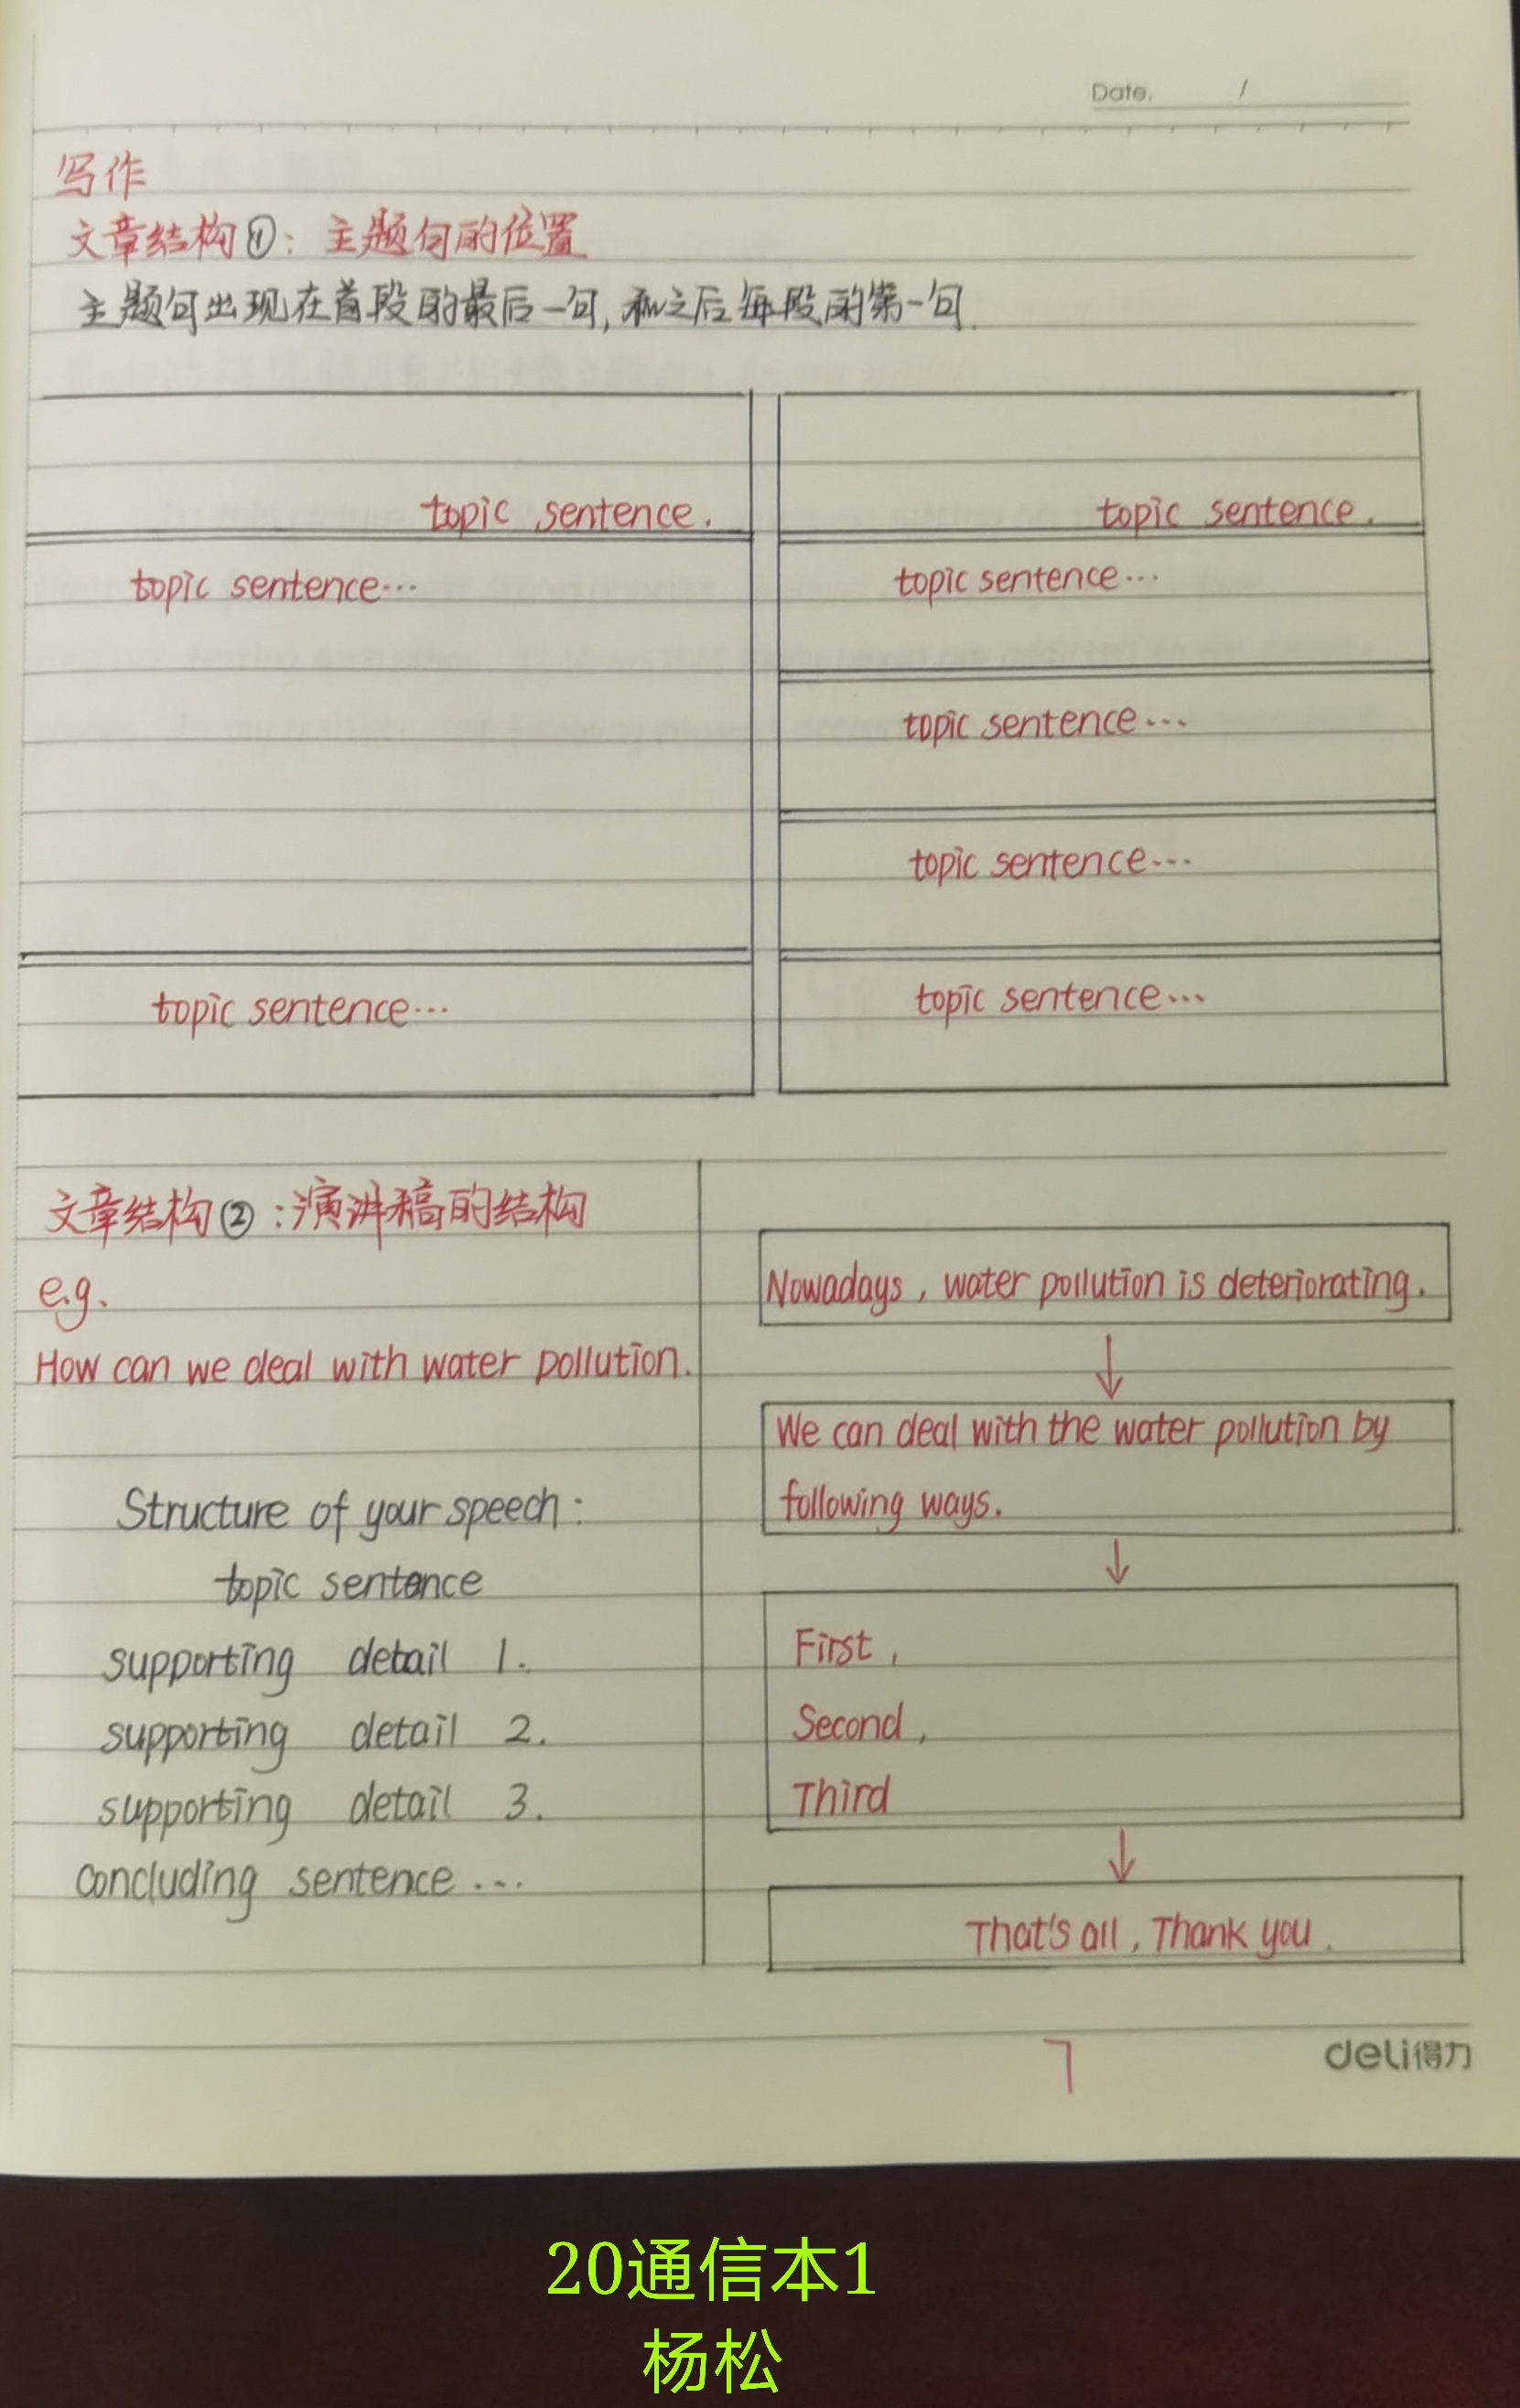 Date. /
写作
文章结构①: 主题句的位置
主题句出现在首段的最后一句, 和之后每段的第一句.
topic sentence.
topic sentence...
topic sentence...
topic sentence.
topic sentence...
topic sentence...
topic sentence...
topic sentence...
文章结构②:演讲稿的结构
e.g.
How can we deal with water pollution.
Structure of your speech:
topic sentence
supporting detail 1.
supporting detail 2.
supporting detail 3.
concluding sentence...
Nowadays, water pollution is deteriorating.
We can deal with the water pollution by
following ways.
First,
Second,
Third
That's all, Thank you.
7
deli得力
20通信本1
杨松